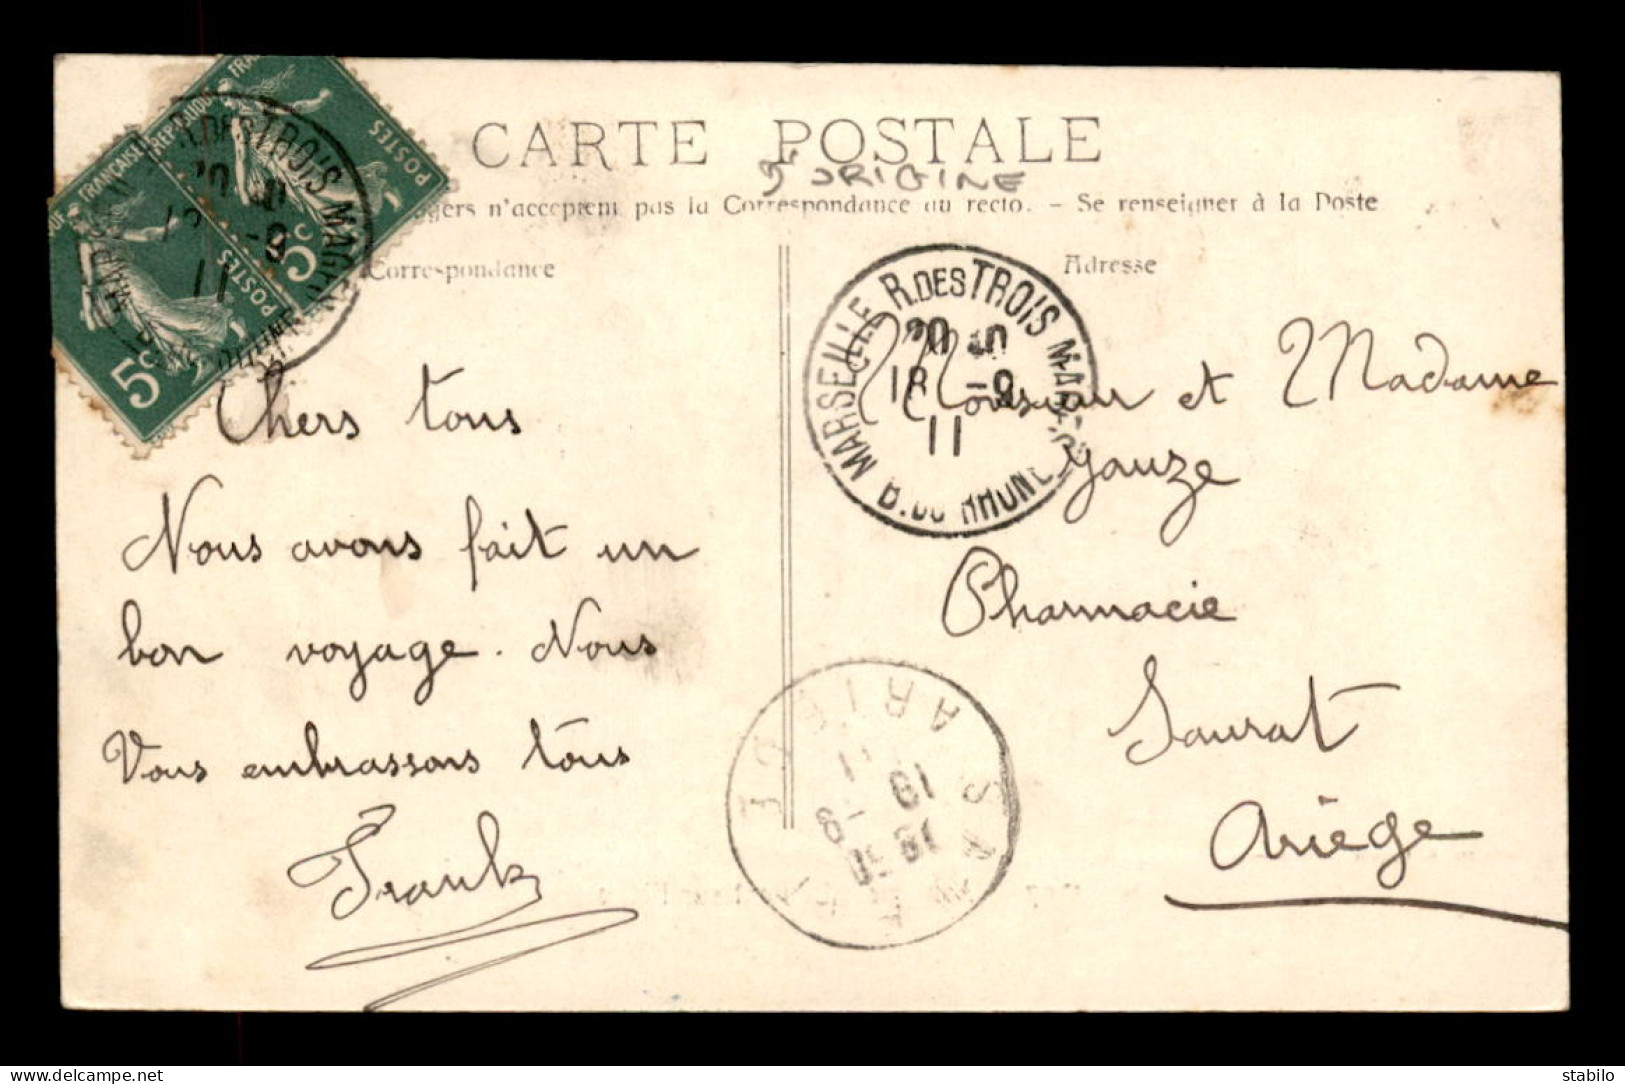 CARTE POSTALE
D'ORIGINE
n'acceptent pas la Correspondance au recto. - Se renseigner à la Poste
Correspondance
Adresse
RÉPUBLIQUE FRANÇAISE
POSTES
5c
POSTES
5c
R. DES TROIS MAG
18 -9
11
MARSEILLE R. DES TROIS MAGES
20
18 -9
11
B. DU RHONE
Chers tous
Nous avons fait un
bon voyage. Nous
Vous embrassons tous
Frank
Monsieur et Madame
Gauze
Pharmacie
Saurat
Ariège
SAURAT
ARIEGE
19 -9
11
delcampe.net
stabilo